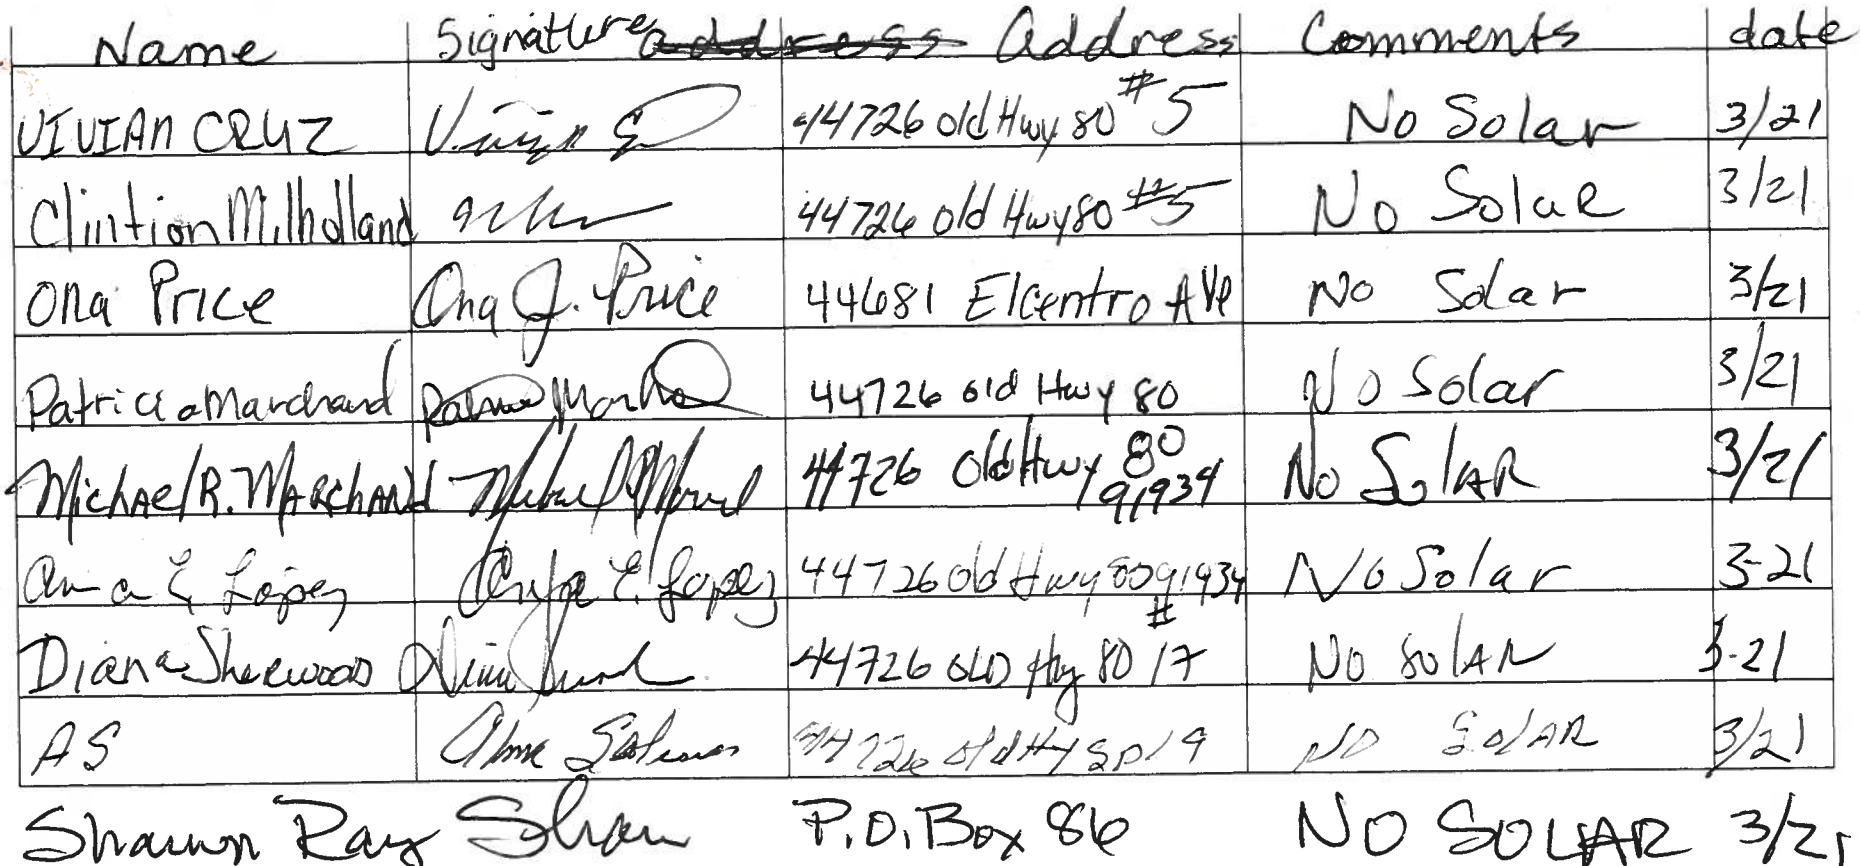 Name Signature address Address Comments date
VIVIAN CRUZ 44726 Old Hwy 80 #5 No Solar 3/21
Clintion Milholland 44726 Old Hwy 80 #5 No SolaR 3/21
Ona Price Ona J. Price 44681 Elcentro AVe No Solar 3/21
Patricia Marchand 44726 old Hwy 80 No Solar 3/21
MichAel R. MARChAND 44726 Old Hwy 80 91934 No SolAR 3/21
Ana E Lopez E. Lopez 44726 Old Hwy 80 91934 No Solar 3-21
Diana Sherwood 44726 OLD Hy 80 #17 No SolAR 3-21
AS 44726 old Hy Sp 19 NO SolAR 3/21
Shannon Ray P.O. Box 86 NO SOLAR 3/21